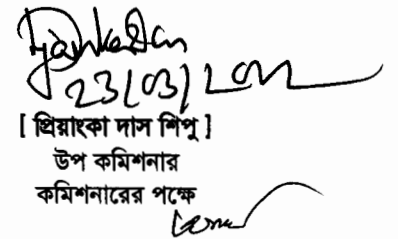 23/03/2022
[ প্রিয়াংকা দাস শিপু ]
উপ কমিশনার
কমিশনারের পক্ষে